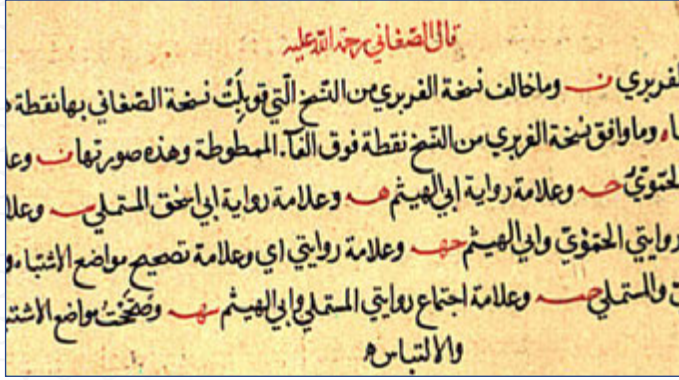 قال الصغاني رحمة الله عليه
الفربري ف وما خالف نسخة الفربري من النسخ التي قوبلت نسخة الصغاني بها نقطة
وما وافق نسخة الفربري من النسخ نقطة فوق الفآء الممطوطة وهذه صورتها ف
حـ وعلامة رواية ابي الهيثم هـ وعلامة رواية ابي اسحق المستملي سـ
روايتي الحموي وابي الهيثم حهـ وعلامة روايتي اي وعلامة تصحيح مواضع الاشتباه و
والمستملي حسـ وعلامة اجتماع روايتي المستملي وابي الهيثم سهـ وصححت مواضع
والالتباس